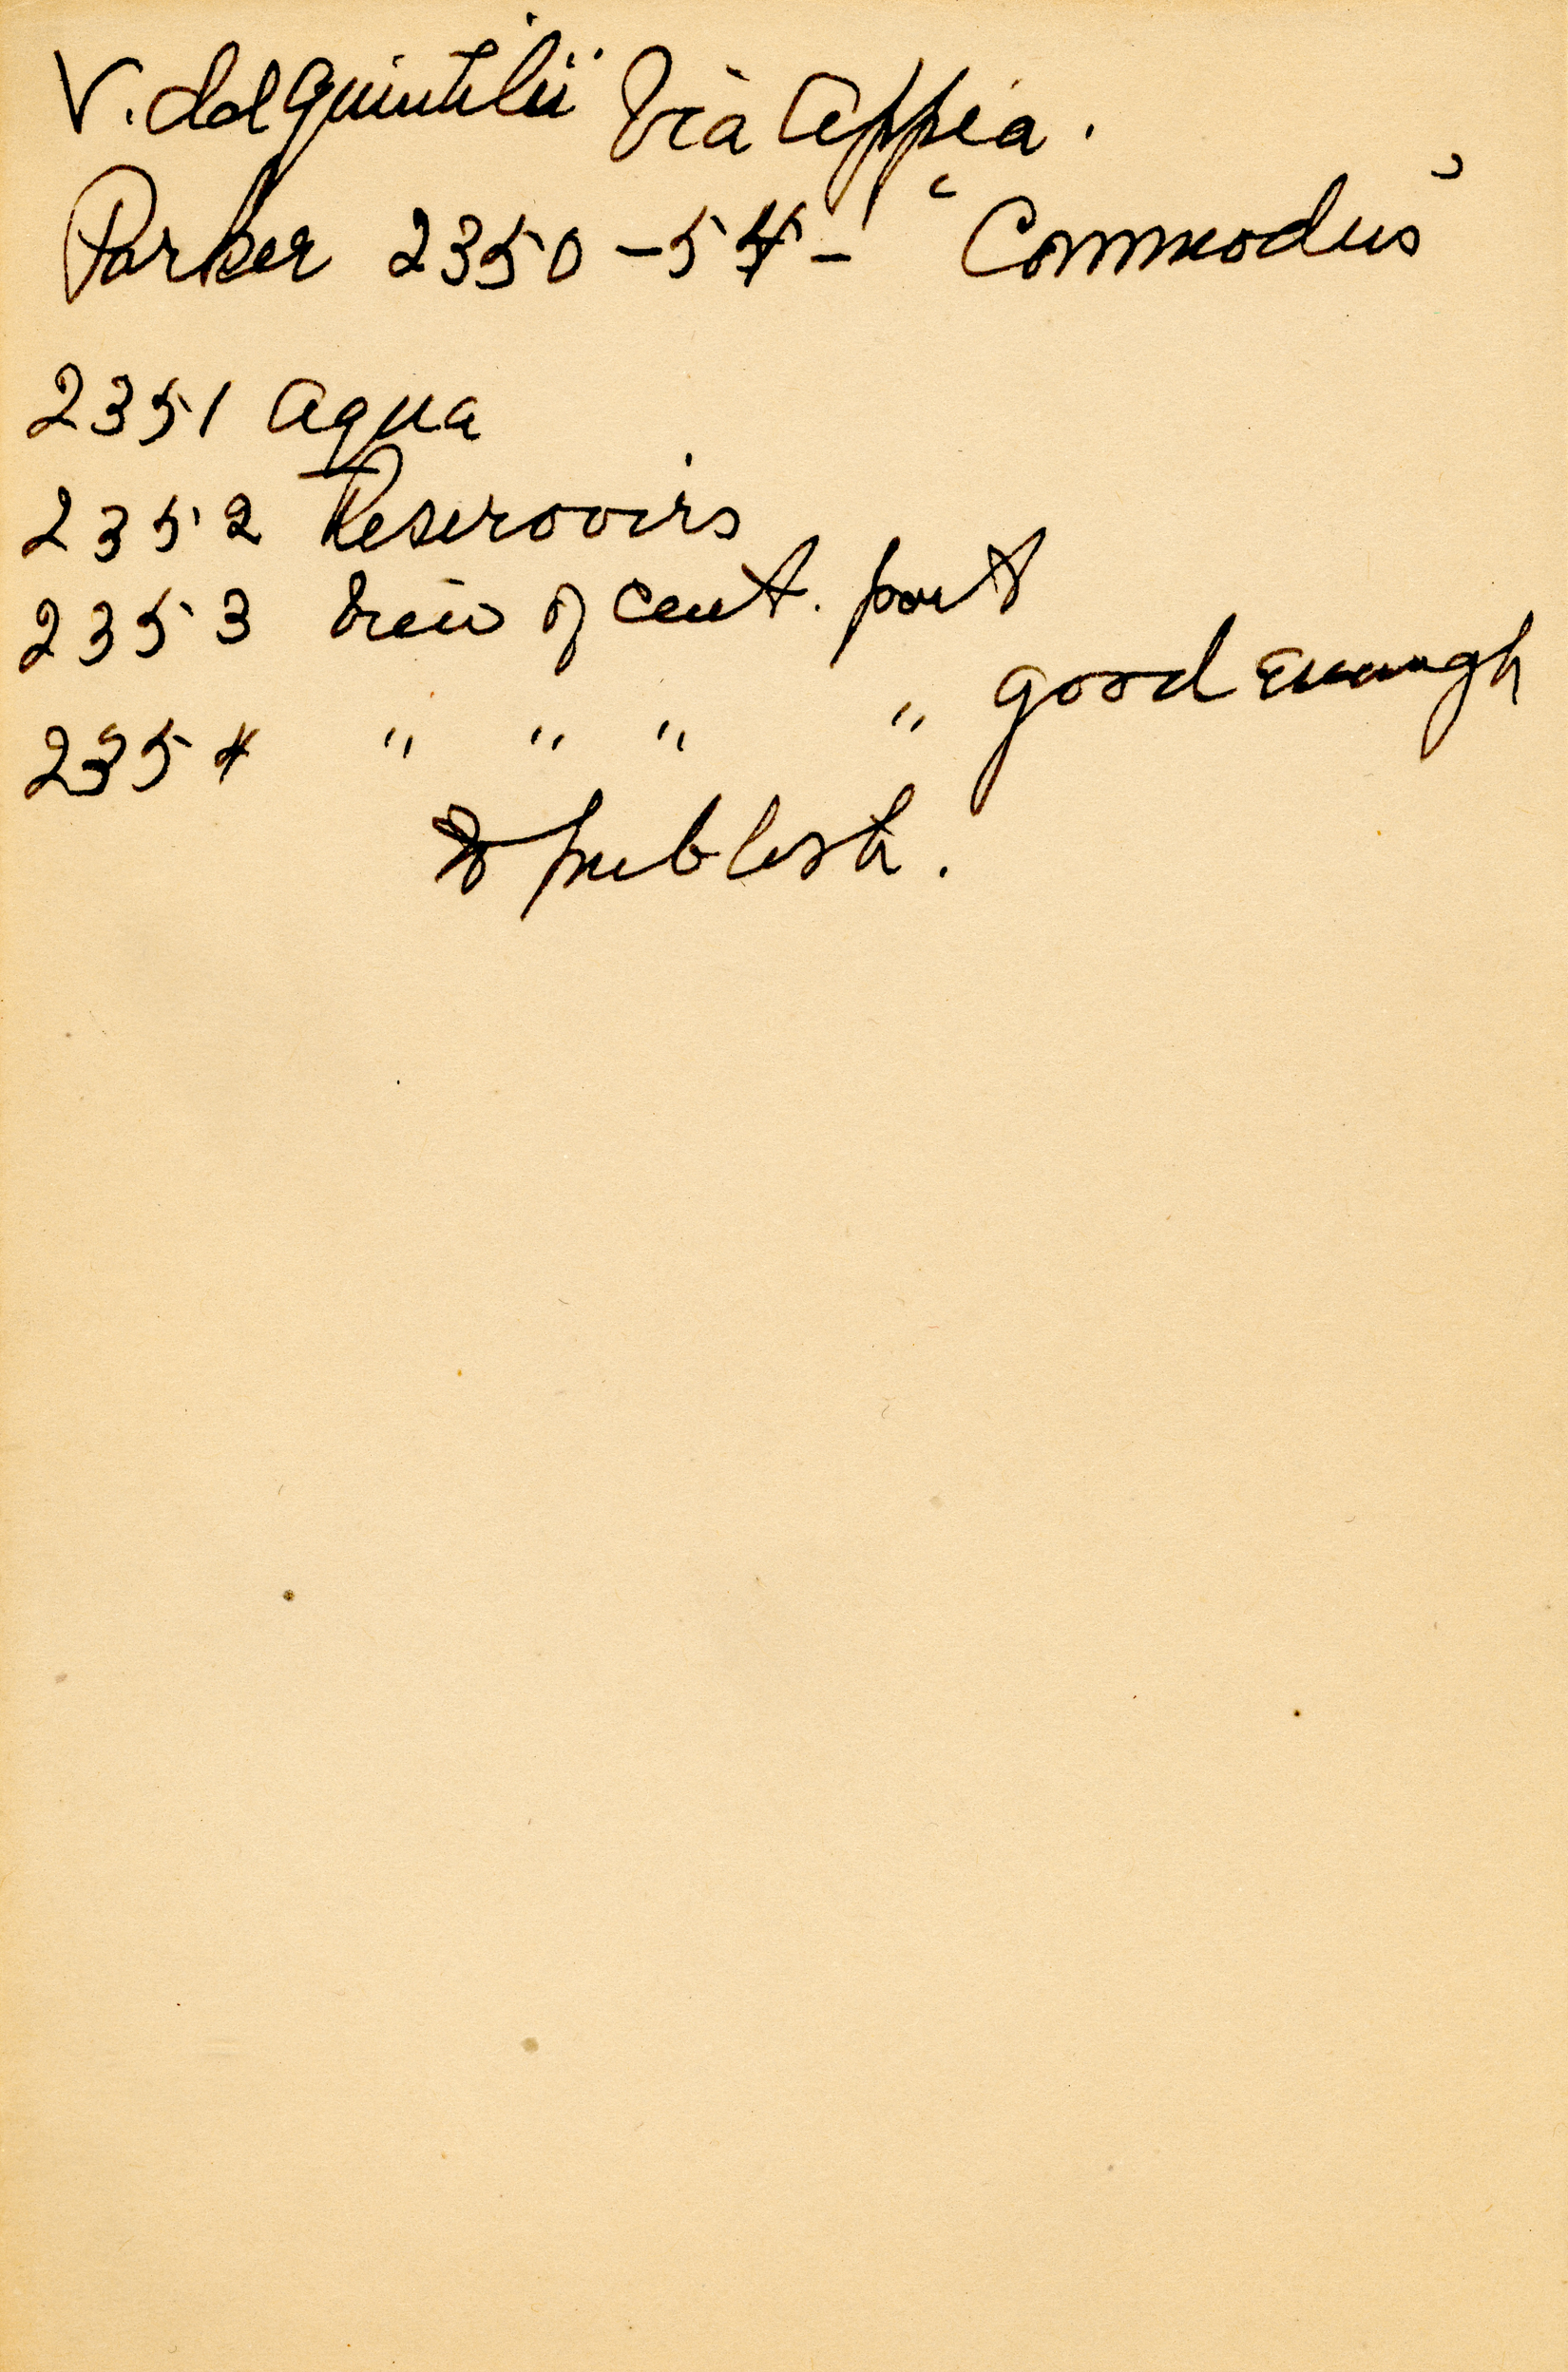 V. del Quintilii Via Appia.
Parker 2350-54- "Commodus"
2351 Aqua
2352 Reservoirs
2353 View of cent. part
2354 " " " " good enough
to publish.